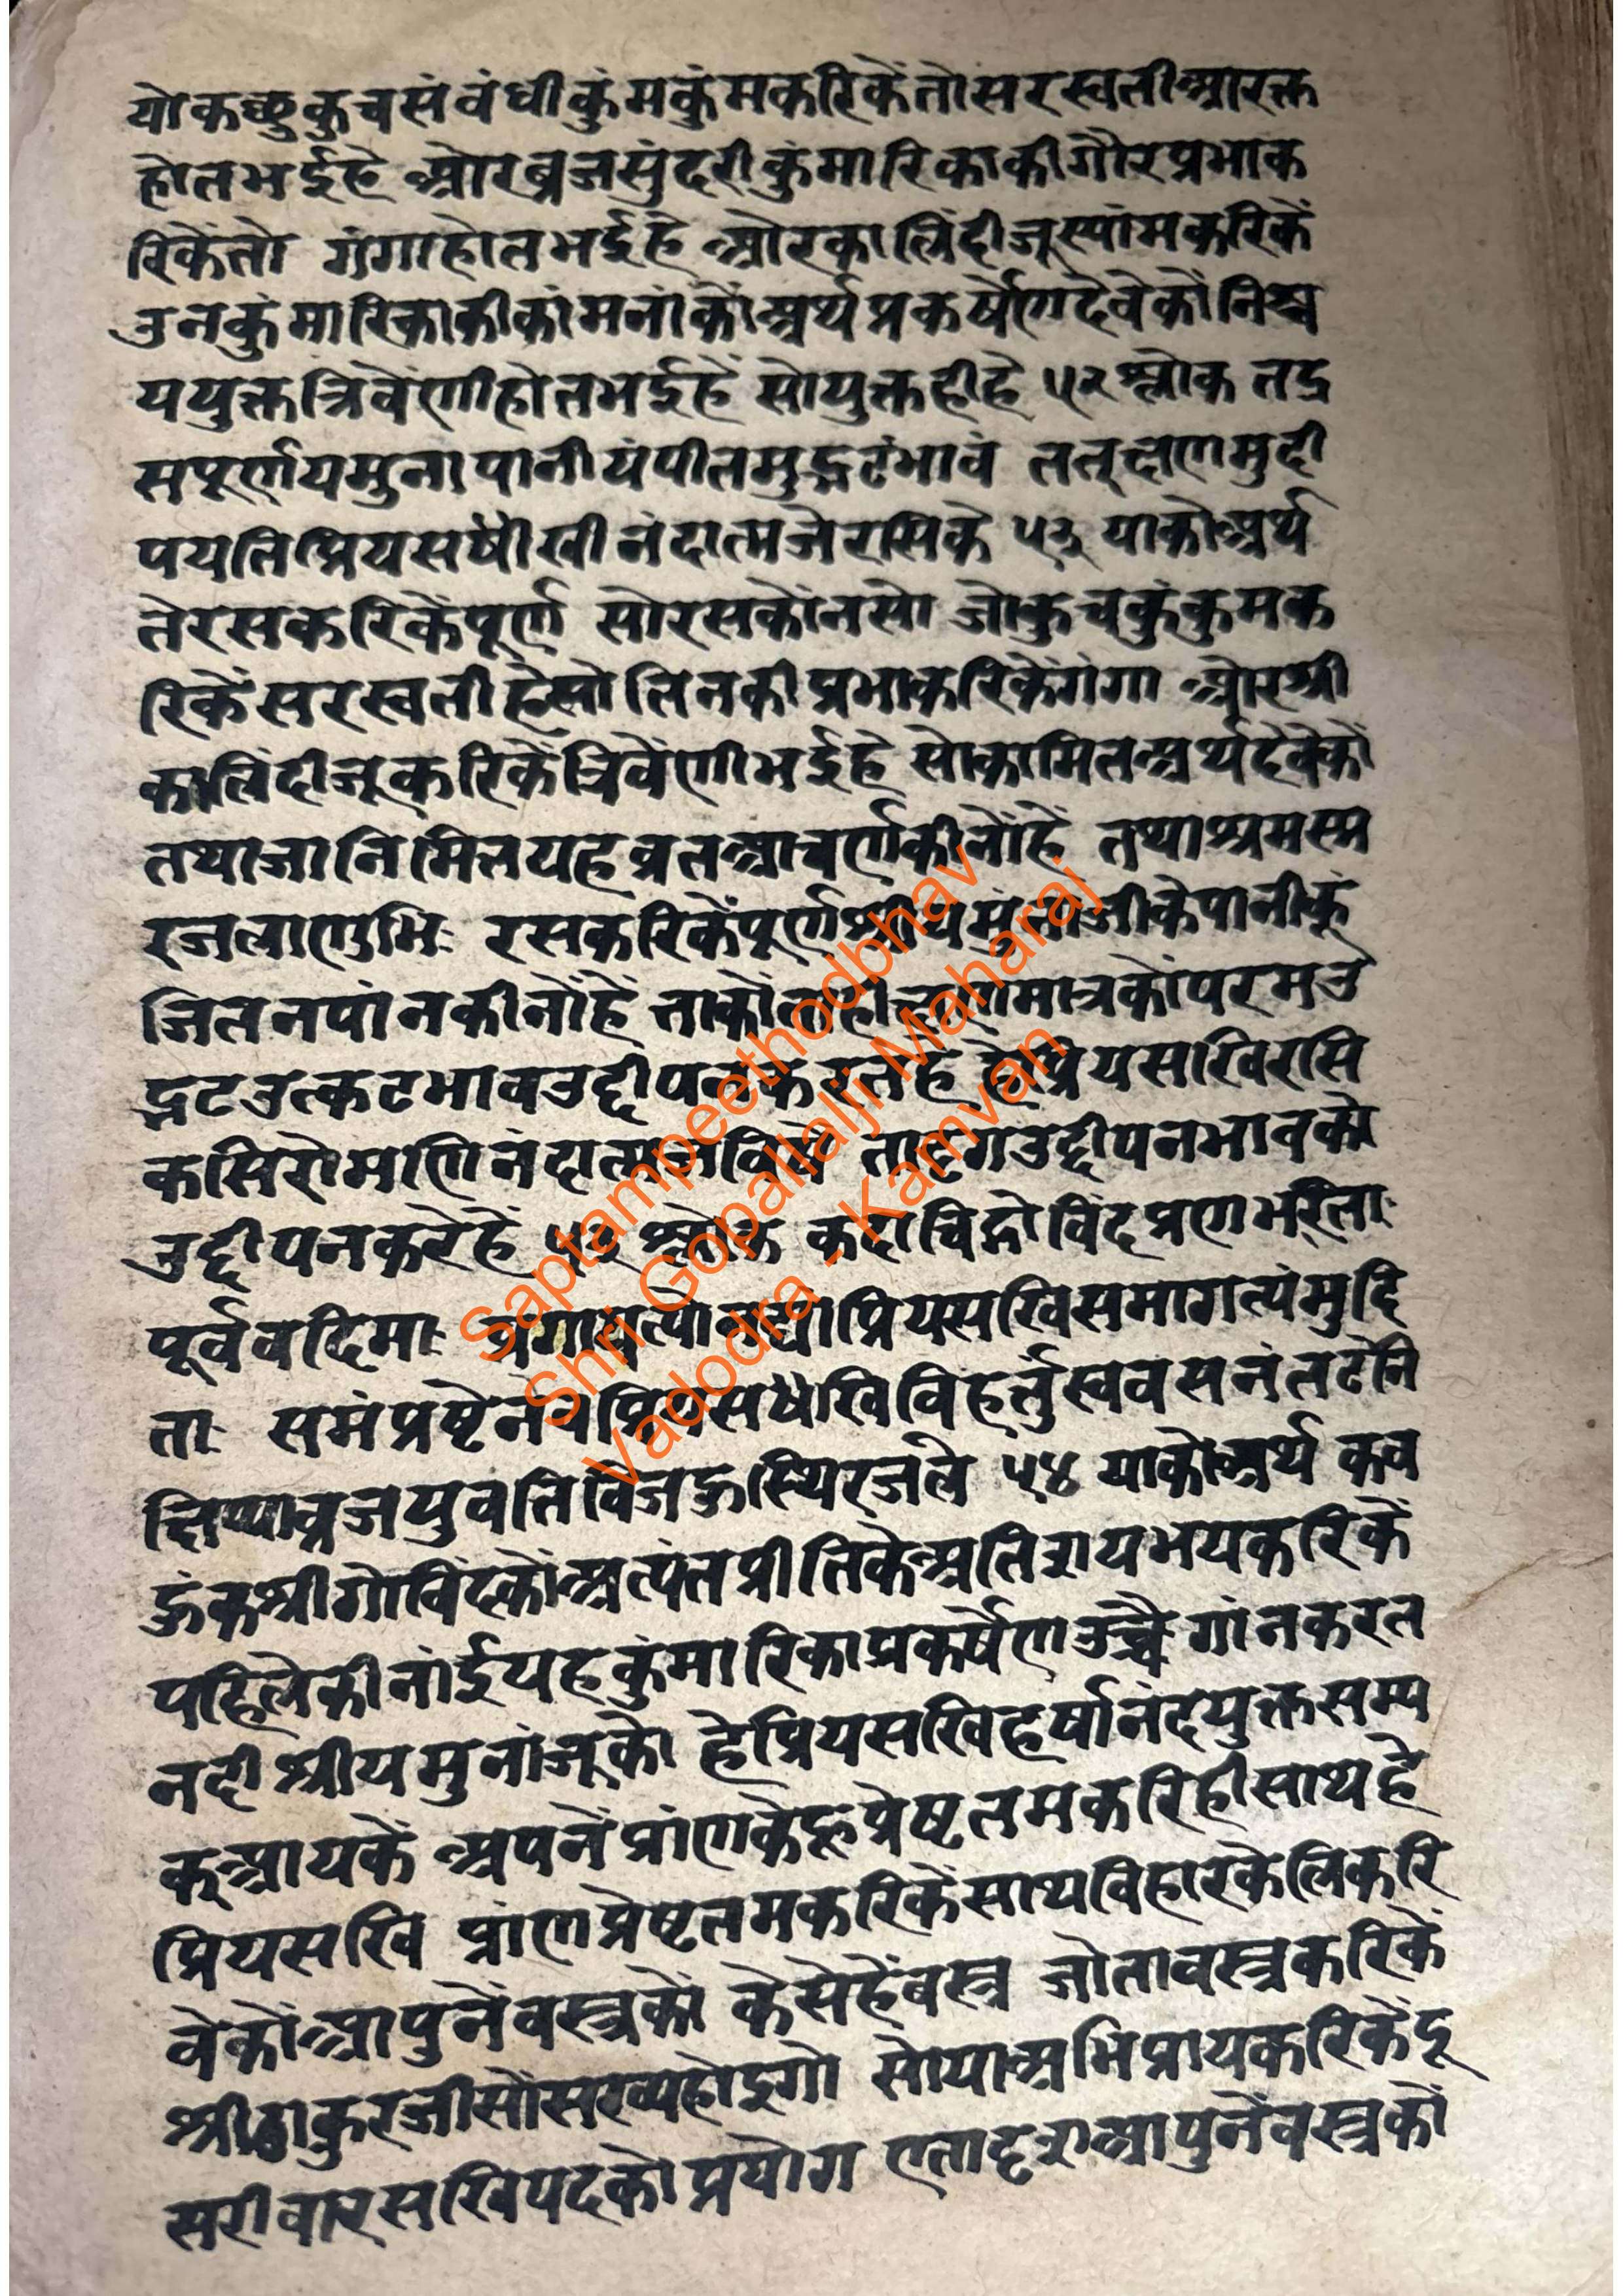 योकछुकुचसंवंधीकुंमकुंमकरिकेंतोसरस्वतीआरक्त
होतभईहे ओरब्रजसुंदरीकुंमारिकाकीगौरप्रभाक
रिकेंतो गंगाहोतभईहे ओरकालिंदीजूस्यांमकरिकें
उनकुंमारिकाकीकांमनांकोंअर्थप्रकर्षेणदेवेकोंनिश्च
ययुक्तत्रिवेंणीहोतभईहें सोयुक्तहीहे ५२ श्लोक तद्र
सपूर्णयमुनापानीयंपीतमुद्भटंभावं तत्क्षणमुद्दी
पयतिप्रियसखीनंदात्मजेरसिके ५३ याकोअर्थ
तेरसकरिकेंपूर्ण सोरसकोंनसो जोकुचकुंकुमक
रिकेंसरस्वतीहेसो तिनकीप्रभाकरिकेंगंगा ओरश्री
कालिंदीजूकरिकेंत्रिवेंणीभईहे सोकामितअर्थदेवेकों
तथाजानिमितयहव्रतआचर्णकीनोंहें तथाश्रमस्म
रजलाणुभिः रसकरिकेंपूर्णश्रीयमुनाजीकेपानीकूं
जितनपांनकीनोंहें ताकोंताहीक्षणमात्रकोंपरमउ
द्भटउत्कटभावउद्दीपनकरतहे हेप्रियसखिरसि
कसिरोमणिनंदात्मजविषें तादृगउद्दीपनभावको
उद्दीपनकरेहें ५३ श्लोक कदाचिद्गोविंदप्रणभरिताः
पूर्ववदिमाः प्रगायत्योनद्यांप्रियसखिसमागत्यंमुदि
ताः समंप्रष्टेनेवप्रियसखिविहर्तुस्ववसनंतटेनि
क्षिप्याव्रजयुवतिविजह्रुस्थिरजले ५४ याकोअर्थ कव
हुंकश्रीगोविंदकोंअत्यंतप्रीतिकेअतिशयभयकरिकें
पहिलेकीनांईयहकुंमारिकाप्रकर्षेणउच्चै गांनकरत
नदीश्रीयमुनांजूको हेप्रियसखिहर्षानंदयुक्तसम्य
कूआयकें अपनेंप्रांणकेहूप्रेष्टतमकरिहीसाथहे
प्रियसखि प्रांणप्रेष्टतमकरिकेंसाथविहारकेलिकरि
वेकोंआपुनेंवस्त्रकों केसेहेंवस्त्र जोतावस्त्रकरिकें
श्रीठाकुरजीसोंसख्यहोइगो सोयाअभिप्रायकरिकेंदू
सरीवारसखिपदकोप्रयोग एतादृशआपुनेंवस्त्रकों
Saptampeethodbhav
Shri Gopallalji Maharaj
Vadodra - Kamvan